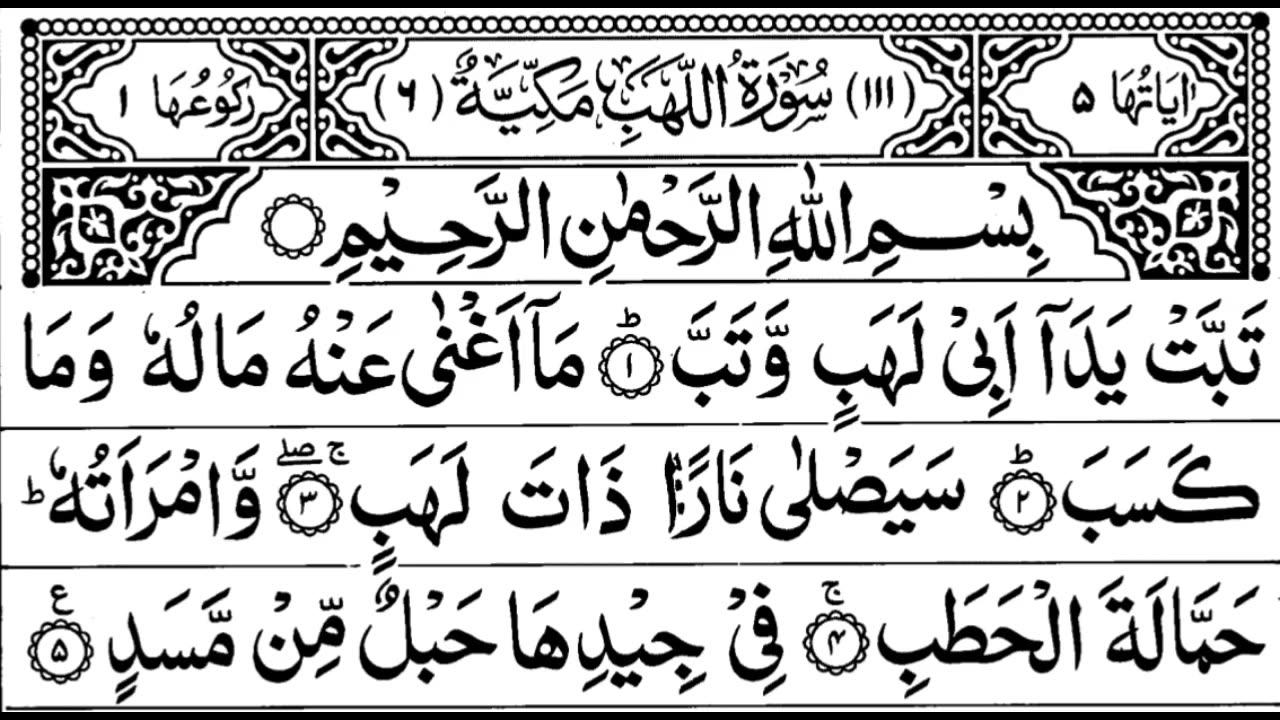 اٰيَاتُهَا ۵ (۱۱۱) سُوْرَةُ اللَّهَبِ مَكِّيَّةٌ (۶) رُكُوْعُهَا ۱
بِسْمِ اللهِ الرَّحْمٰنِ الرَّحِيْمِ
تَبَّتْ يَدَآ اَبِيْ لَهَبٍ وَّتَبَّ ؕ ۱ مَآ اَغْنٰى عَنْهُ مَالُهٗ وَمَا
كَسَبَ ؕ ۲ سَيَصْلٰى نَارًا ذَاتَ لَهَبٍ ۚ ۖ ۳ وَّامْرَاَتُهٗ ؕ
حَمَّالَةَ الْحَطَبِ ۚ ۴ فِيْ جِيْدِهَا حَبْلٌ مِّنْ مَّسَدٍ ع ۵